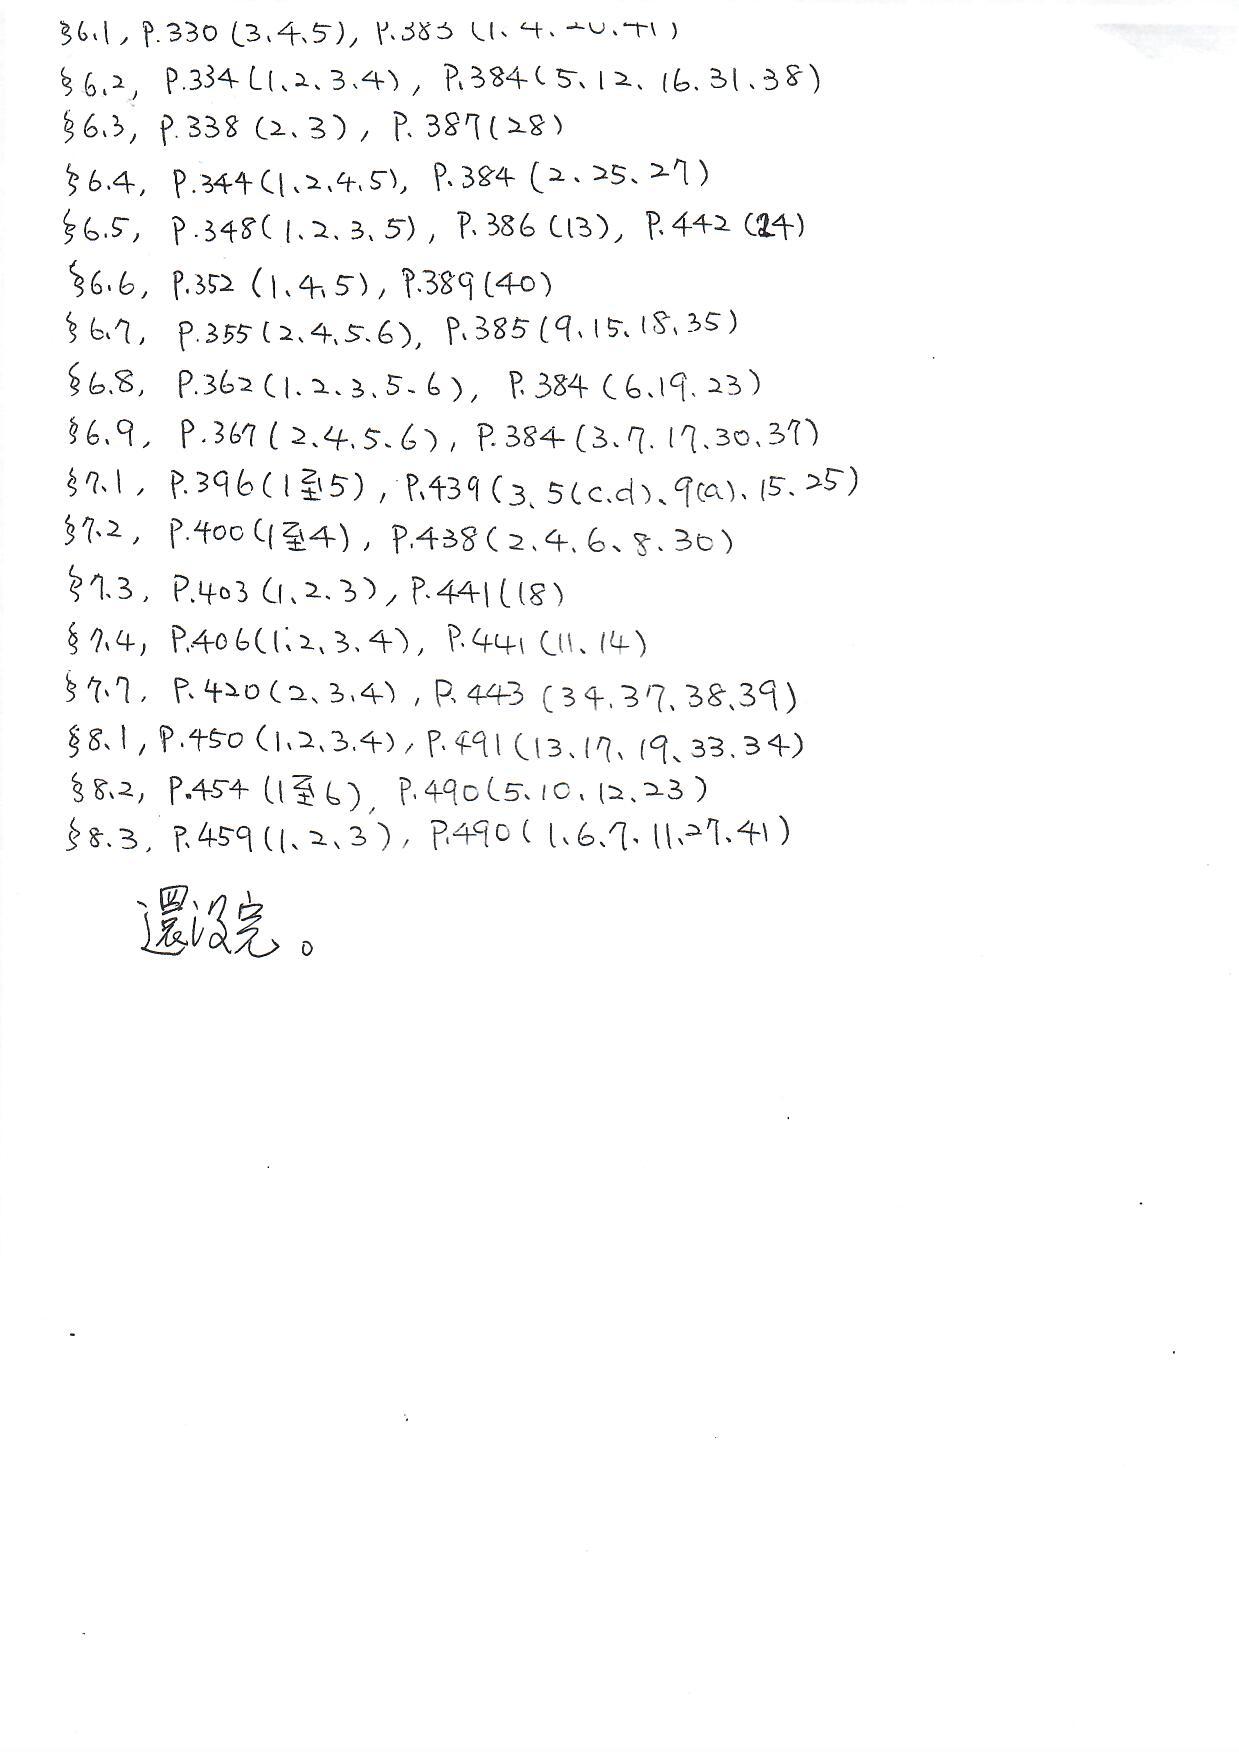 §6.1, P.330 (3、4、5), P.383 (1、4、20、41)
§6.2, P.334 (1、2、3、4), P.384 (5、12、16、31、38)
§6.3, P.338 (2、3), P.387 (28)
§6.4, P.344 (1、2、4、5), P.384 (2、25、27)
§6.5, P.348 (1、2、3、5), P.386 (13), P.442 (24)
§6.6, P.352 (1、4、5), P.389 (40)
§6.7, P.355 (2、4、5、6), P.385 (9、15、18、35)
§6.8, P.362 (1、2、3、5、6), P.384 (6、19、23)
§6.9, P.367 (2、4、5、6), P.384 (3、7、17、30、37)
§7.1, P.396 (1至5), P.439 (3、5(c.d)、9(a)、15、25)
§7.2, P.400 (1至4), P.438 (2、4、6、8、30)
§7.3, P.403 (1、2、3), P.441 (18)
§7.4, P.406 (1、2、3、4), P.441 (11、14)
§7.7, P.420 (2、3、4), P.443 (34、37、38、39)
§8.1, P.450 (1、2、3、4), P.491 (13、17、19、33、34)
§8.2, P.454 (1至6), P.490 (5、10、12、23)
§8.3, P.459 (1、2、3), P.490 (1、6、7、11、27、41)
還沒完。